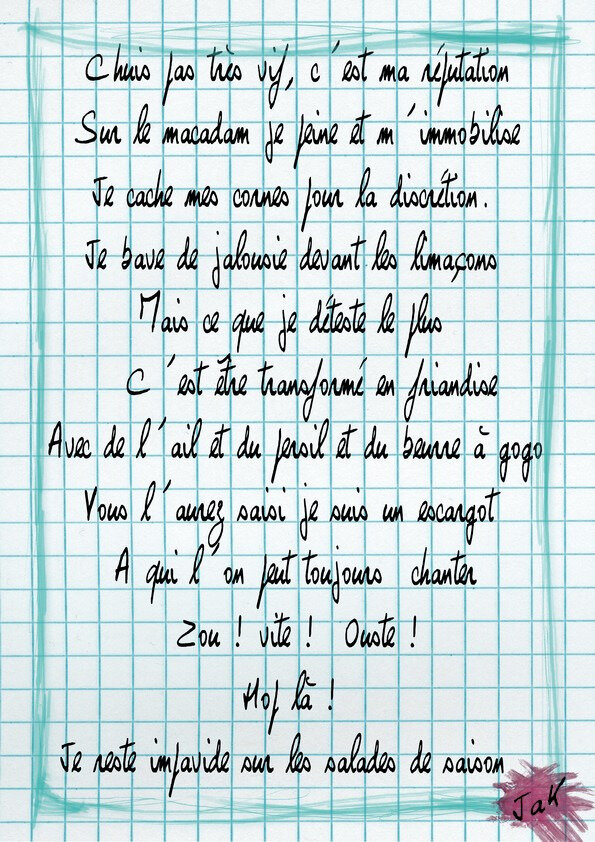 Chuis pas très vif, c'est ma réputation
Sur le macadam je peine et m'immobilise
Je cache mes cornes pour la discrétion.
Je bave de jalousie devant les limaçons
Mais ce que je déteste le plus
C'est être transformé en friandise
Avec de l'ail et du persil et du beurre à gogo
Vous l'aurez saisi je suis un escargot
A qui l'on peut toujours chanter
Zou ! vite ! Ouste !
Hop là !
Je reste impavide sur les salades de saison
JaK